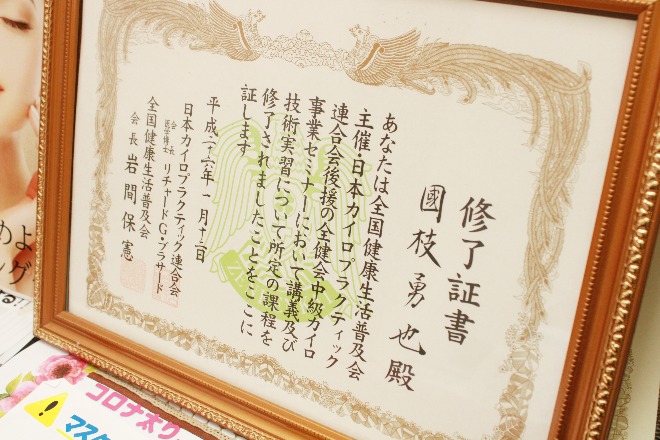 修了証書
國枝勇也殿
あなたは全国健康生活普及会
主催・日本カイロプラクティック
連合会後援の全健会中級カイロ
事業セミナーにおいて講義及び
技術実習について所定の課程を
修了されましたことをここに
証します
平成二六年一月十二日
日本カイロプラクティック連合会
会長
医学博士 リチャード・G・ブラサード
全国健康生活普及会
会長 岩間保憲
コロナ太り
マスク